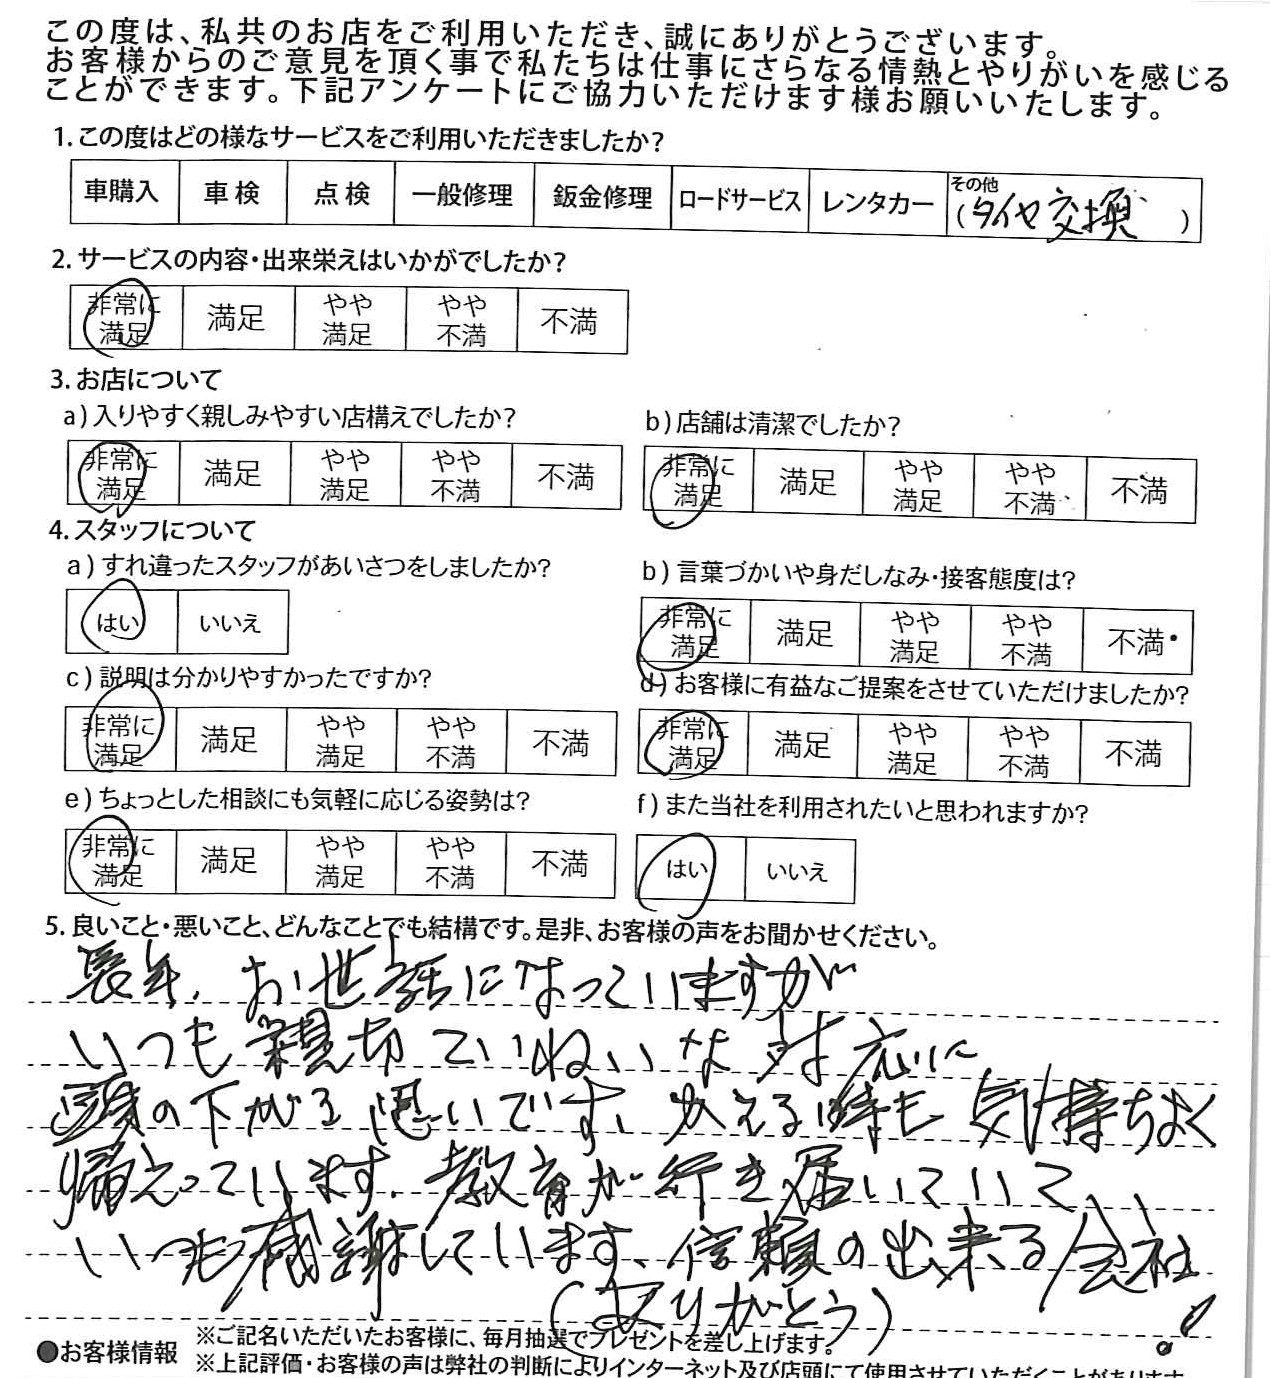 この度は、私共のお店をご利用いただき、誠にありがとうございます。
お客様からのご意見を頂く事で私たちは仕事にさらなる情熱とやりがいを感じる
ことができます。下記アンケートにご協力いただけます様お願いいたします。
1.この度はどの様なサービスをご利用いただきましたか?
車購入 車検 点検 一般修理 鈑金修理 ロードサービス レンタカー その他
(タイヤ交換)
2.サービスの内容・出来栄えはいかがでしたか?
非常に満足 満足 やや満足 やや不満 不満
3.お店について
a)入りやすく親しみやすい店構えでしたか? b)店舗は清潔でしたか?
非常に満足 満足 やや満足 やや不満 不満 非常に満足 満足 やや満足 やや不満 不満
4.スタッフについて
a)すれ違ったスタッフがあいさつをしましたか? b)言葉づかいや身だしなみ・接客態度は?
はい いいえ 非常に満足 満足 やや満足 やや不満 不満
c)説明は分かりやすかったですか? d)お客様に有益なご提案をさせていただけましたか?
非常に満足 満足 やや満足 やや不満 不満 非常に満足 満足 やや満足 やや不満 不満
e)ちょっとした相談にも気軽に応じる姿勢は? f)また当社を利用されたいと思われますか?
非常に満足 満足 やや満足 やや不満 不満 はい いいえ
5.良いこと・悪いこと、どんなことでも結構です。是非、お客様の声をお聞かせください。
長年、お世話になっていますが
いつも親切ていねいな対応に
頭の下がる思いです、かえる時も気持ちよく
帰えっています。教育が行き届いていて、
いつも感謝しています、信頼の出来る会社!
(ありがとう)
●お客様情報 ※ご記名いただいたお客様に、毎月抽選でプレゼントを差し上げます。
※上記評価・お客様の声は弊社の判断によりインターネット及び店頭にて使用させていただくことがあります